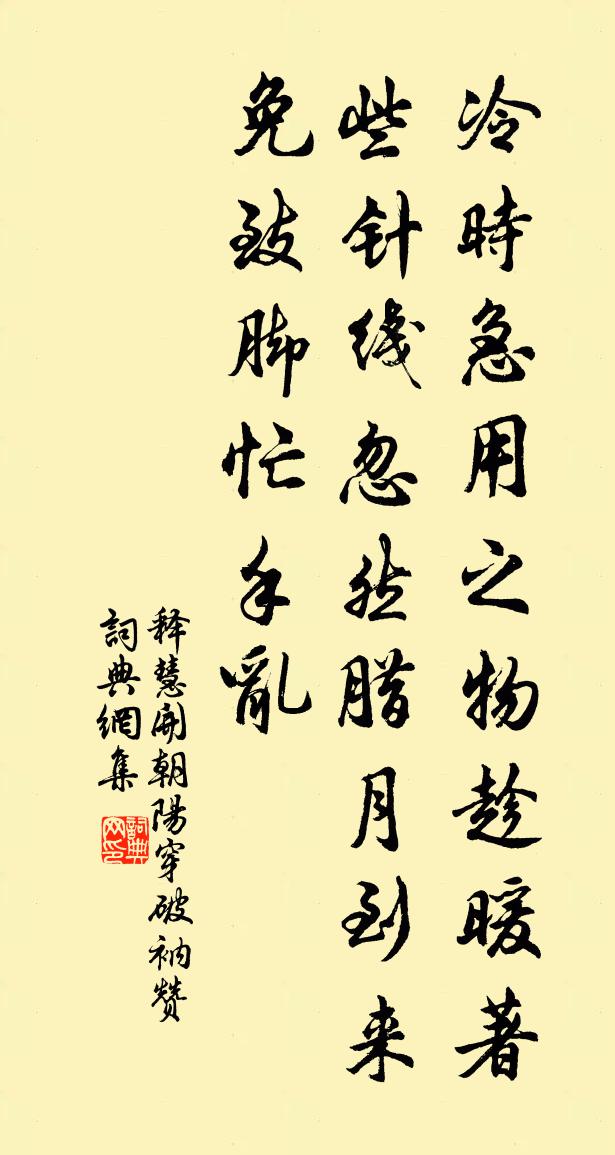 冷時急用之物趁暖著
些针线忽然腊月到来
免致脚忙手亂
释慧開朝陽穿破衲赞
詞典網集
詞典網印